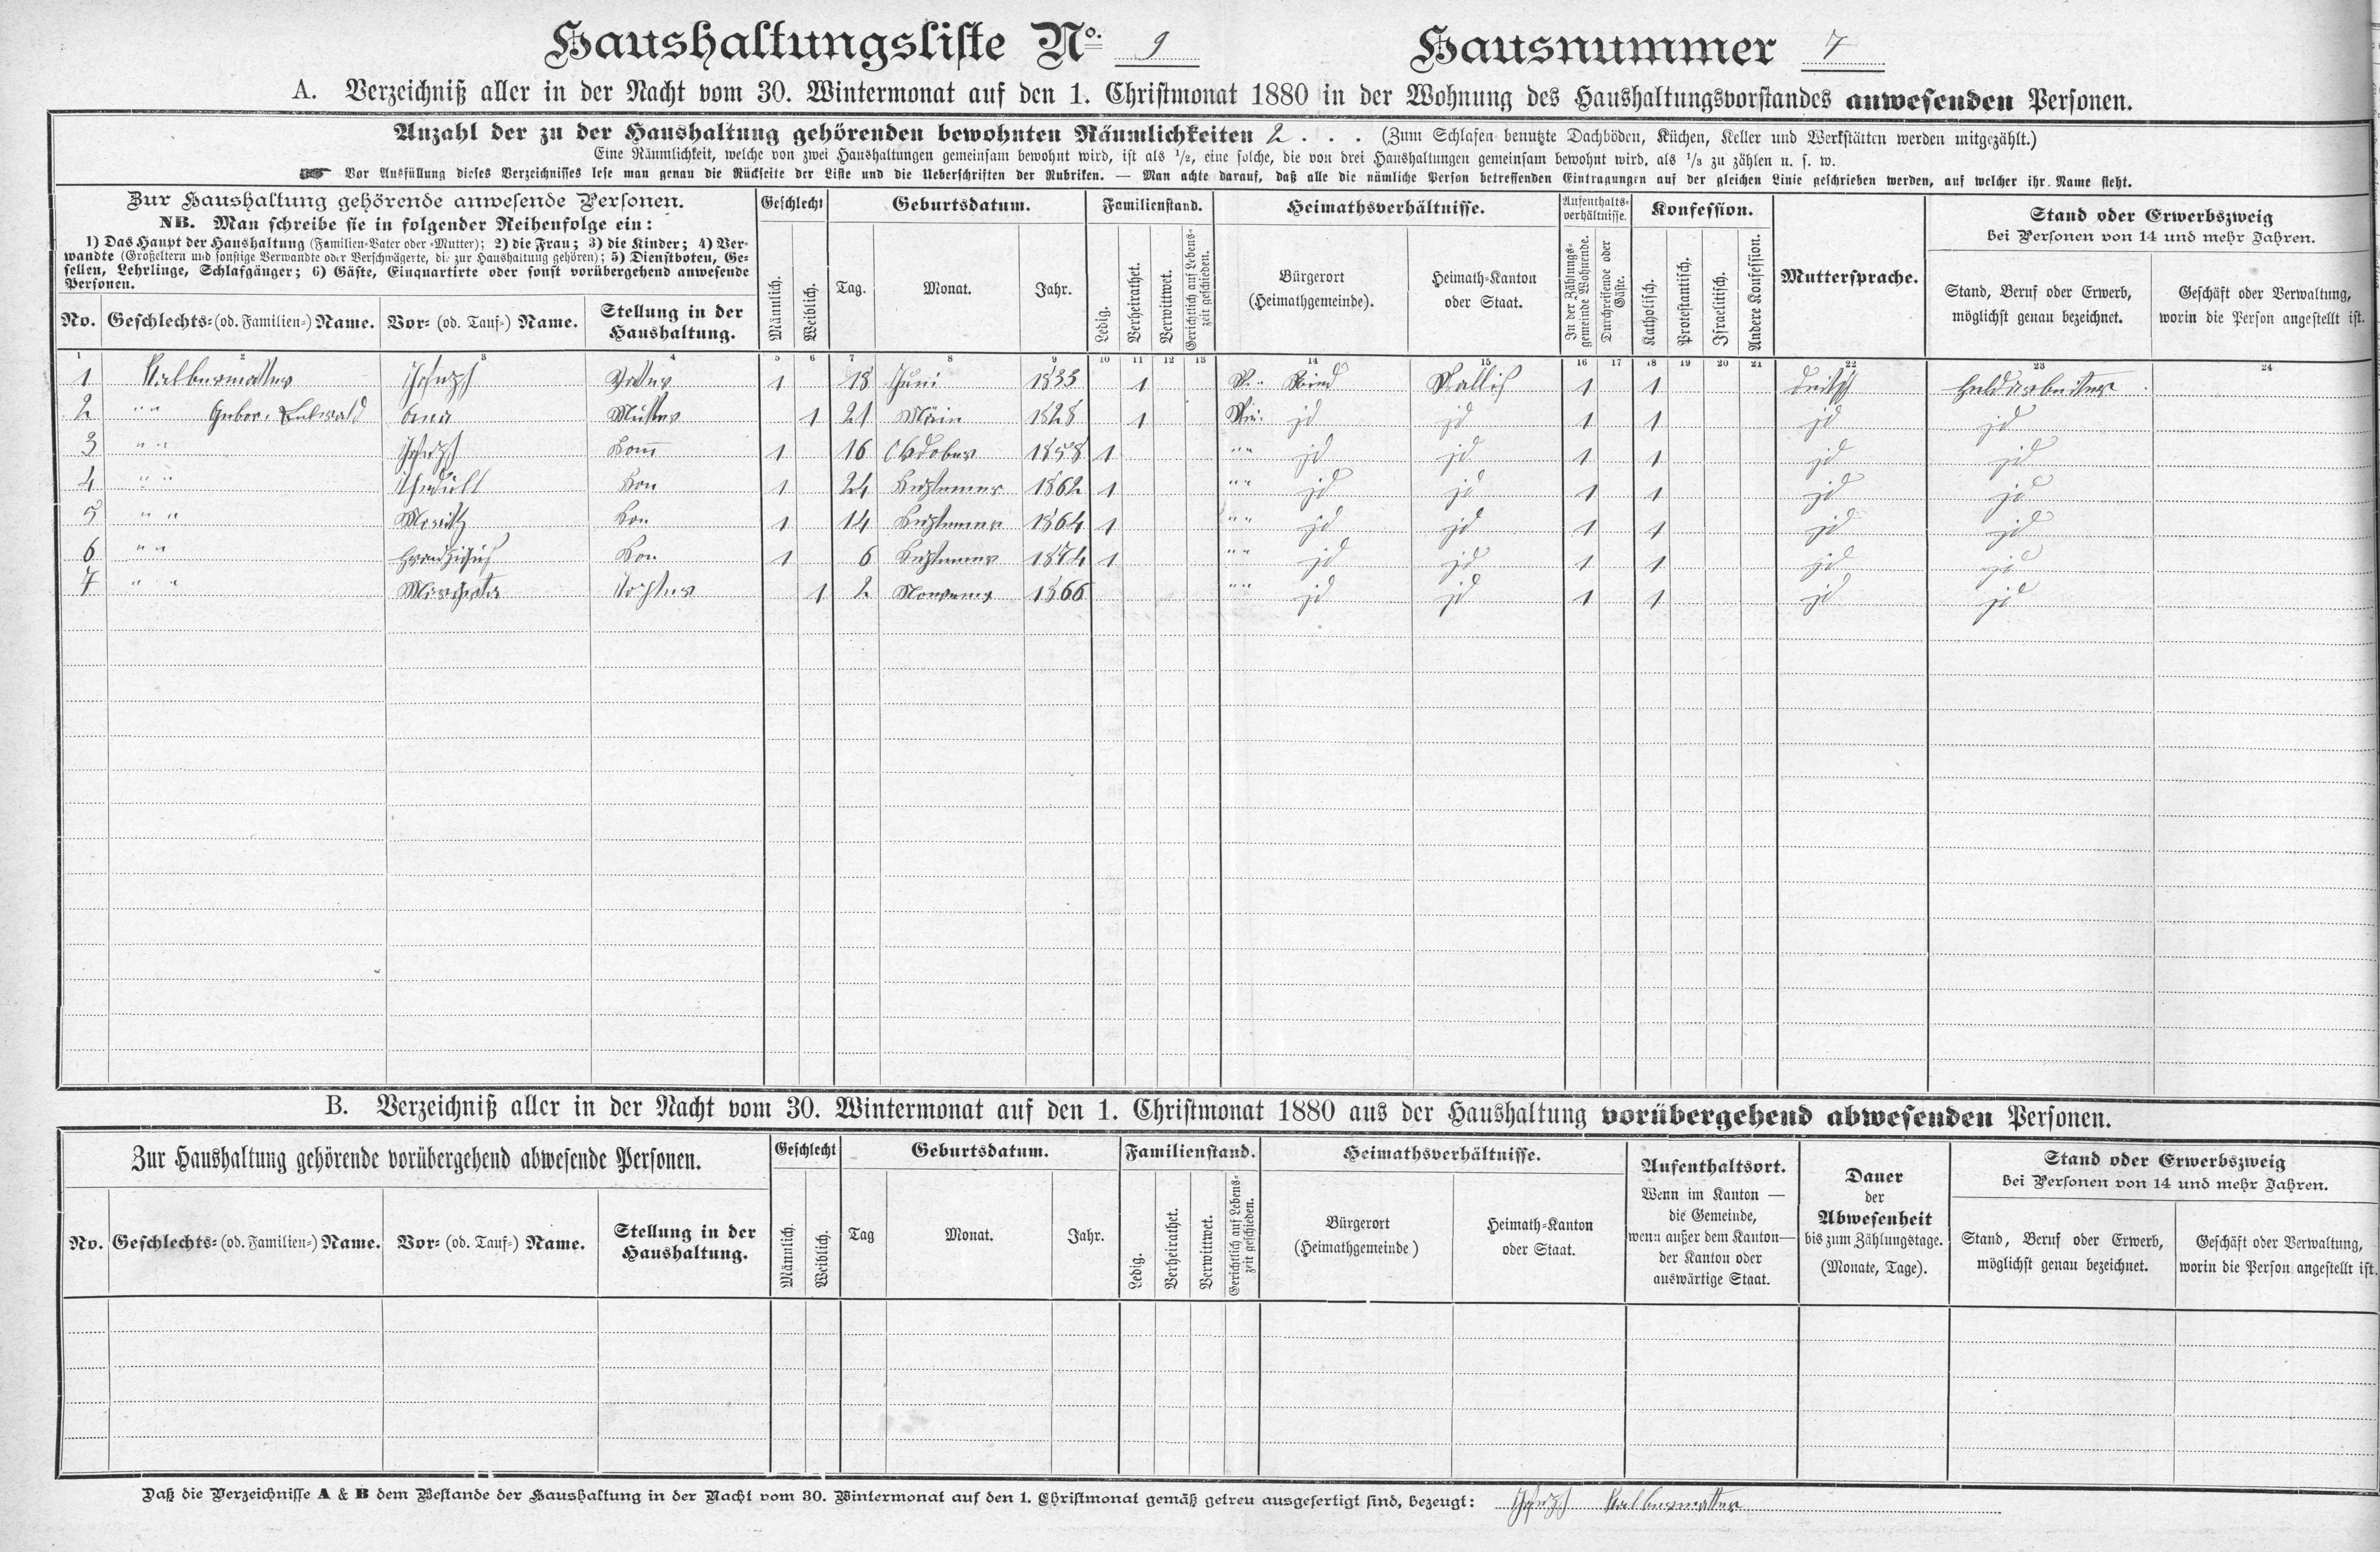 Haushaltungsliste No. 9 Hausnummer 7
A. Verzeichniß aller in der Nacht vom 30. Wintermonat auf den 1. Christmonat 1880 in der Wohnung des Haushaltungsvorstandes anwesenden Personen.
Anzahl der zu der Haushaltung gehörenden bewohnten Räumlichkeiten 2 . . . (Zum Schlafen benutzte Dachböden, Küchen, Keller und Werkstätten werden mitgezählt.)
Eine Räumlichkeit, welche von zwei Haushaltungen gemeinsam bewohnt wird, ist als 1/2, eine solche, die von drei Haushaltungen gemeinsam bewohnt wird, als 1/3 zu zählen u. s. w.
Vor Ausfüllung dieses Verzeichnisses lese man genau die Rückseite der Liste und die Ueberschriften der Rubriken. — Man achte darauf, daß alle die nämliche Person betreffenden Eintragungen auf der gleichen Linie geschrieben werden, auf welcher ihr Name steht.
Zur Haushaltung gehörende anwesende Personen.
NB. Man schreibe sie in folgender Reihenfolge ein:
1) Das Haupt der Haushaltung (Familien-Vater oder -Mutter); 2) die Frau; 3) die Kinder; 4) Ver-
wandte (Großeltern und sonstige Verwandte oder Verschwägerte, die zur Haushaltung gehören); 5) Dienstboten, Ge-
sellen, Lehrlinge, Schlafgänger; 6) Gäste, Einquartirte oder sonst vorübergehend anwesende
Personen.
No. Geschlechts- (od. Familien-) Name. Vor- (od. Tauf-) Name. Stellung in der
Haushaltung.
Geschlecht
Männlich. Weiblich.
Geburtsdatum.
Tag. Monat. Jahr.
Familienstand.
Ledig. Verheirathet. Verwittwet. Gerichtlich auf Lebens-
zeit geschieden.
Heimathsverhältnisse.
Bürgerort
(Heimathgemeinde).
Heimath-Kanton
oder Staat.
Aufenthalts-
verhältnisse.
In der Zählungs-
gemeinde Wohnende.
Durchreisende oder
Gäste.
Konfession.
Katholisch. Protestantisch. Israelitisch. Andere Konfession.
Muttersprache.
Stand oder Erwerbszweig
bei Personen von 14 und mehr Jahren.
Stand, Beruf oder Erwerb,
möglichst genau bezeichnet.
Geschäft oder Verwaltung,
worin die Person angestellt ist.
1 2 3 4 5 6 7 8 9 10 11 12 13 14 15 16 17 18 19 20 21 22 23 24
1 Kalbermatter Jhosepf Vatter 1 18 Juni 1833 1 Wallis 1 1 deitsch
2 " " Gebor. Ana Mutter 1 21 1828 1 jd jd 1 1 jd jd
3 " " Jhosepf 1 16 Oktober 1858 1 " " jd jd 1 1 jd jd
4 " " Son 1 24 1862 1 " " jd jd 1 1 jd jd
5 " " Moritz Son 1 14 1864 1 " " jd jd 1 1 jd jd
6 " " Son 1 6 1874 1 " " jd jd 1 1 jd jd
7 " " Tochter 1 2 1866 " " jd jd 1 1 jd jd
B. Verzeichniß aller in der Nacht vom 30. Wintermonat auf den 1. Christmonat 1880 aus der Haushaltung vorübergehend abwesenden Personen.
Zur Haushaltung gehörende vorübergehend abwesende Personen.
No. Geschlechts- (od. Familien-) Name. Vor- (od. Tauf-) Name. Stellung in der
Haushaltung.
Geschlecht
Männlich. Weiblich.
Geburtsdatum.
Tag Monat. Jahr.
Familienstand.
Ledig. Verheirathet. Verwittwet. Gerichtlich auf Lebens-
zeit geschieden.
Heimathsverhältnisse.
Bürgerort
(Heimathgemeinde)
Heimath-Kanton
oder Staat.
Aufenthaltsort.
Wenn im Kanton —
die Gemeinde,
wenn außer dem Kanton—
der Kanton oder
auswärtige Staat.
Dauer
der
Abwesenheit
bis zum Zählungstage.
(Monate, Tage).
Stand oder Erwerbszweig
bei Personen von 14 und mehr Jahren.
Stand, Beruf oder Erwerb,
möglichst genau bezeichnet.
Geschäft oder Verwaltung,
worin die Person angestellt ist.
Daß die Verzeichnisse A & B dem Bestande der Haushaltung in der Nacht vom 30. Wintermonat auf den 1. Christmonat gemäß getreu ausgefertigt sind, bezeugt: Jhosepf Kalbermatter